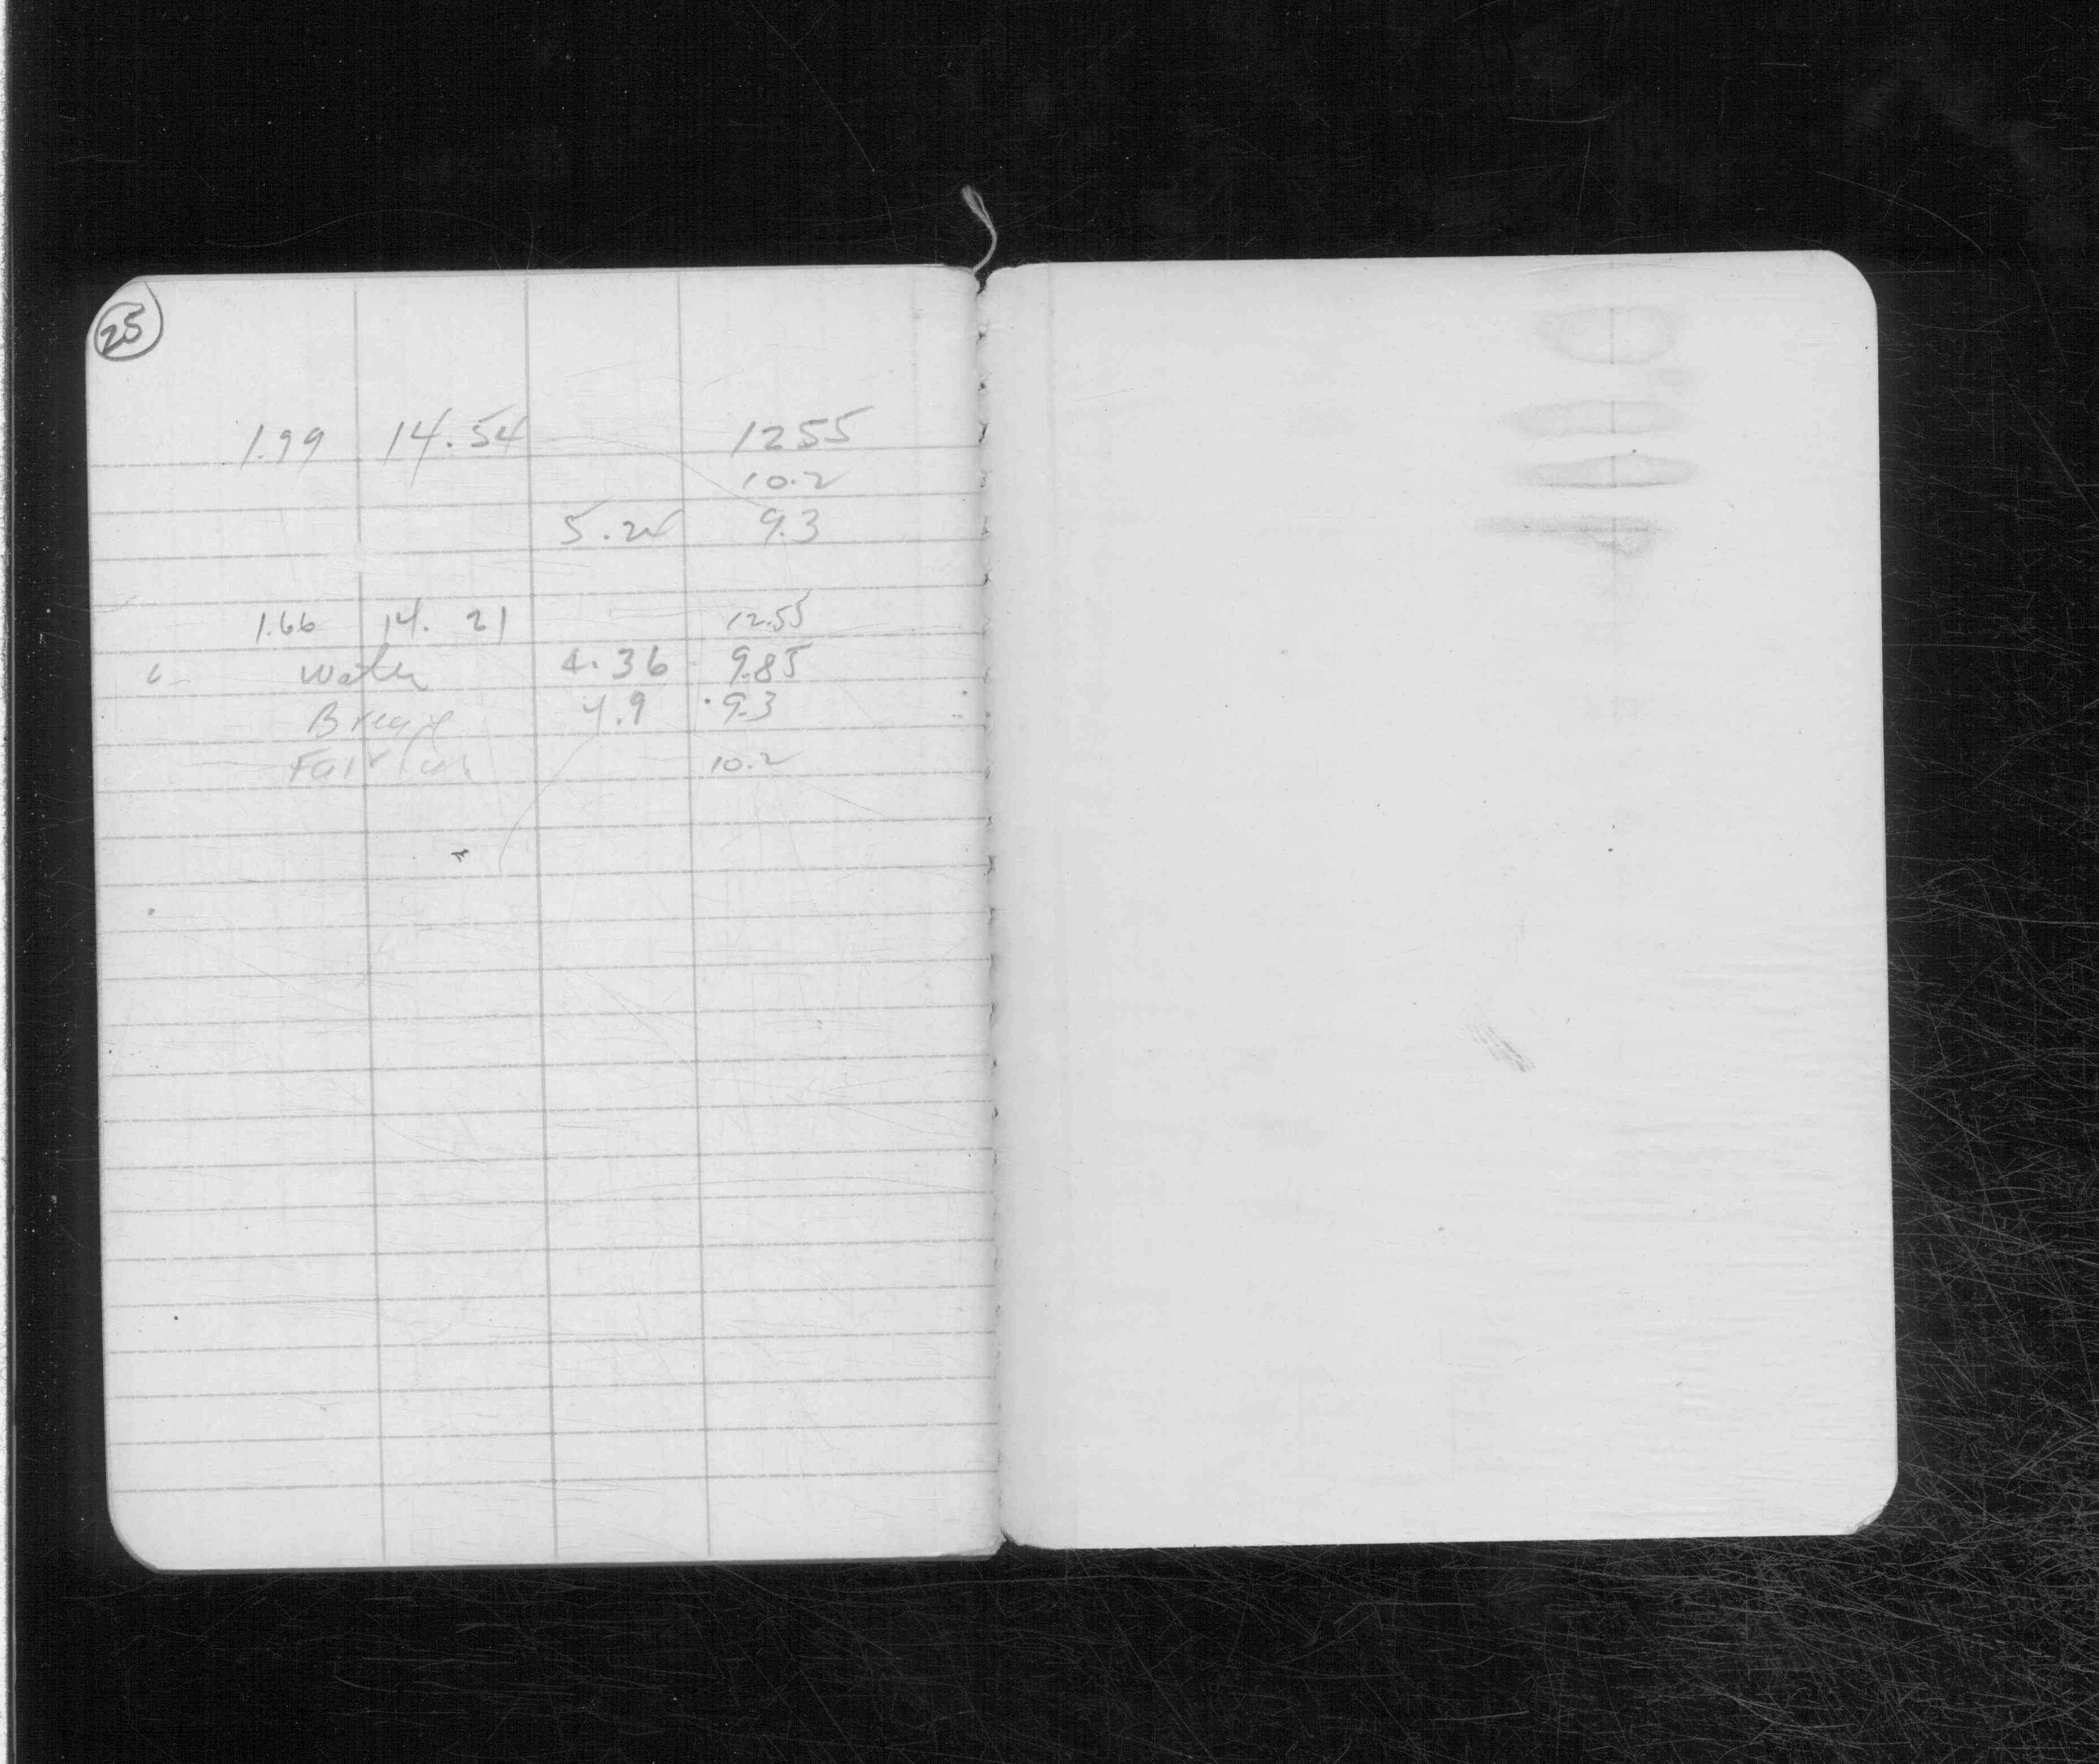 25
1.99 14.54 1255
10.2
5.24 9.3
1.66 14. 21 12.55
Water 4.36 9.85
4.9 9.3
10.2